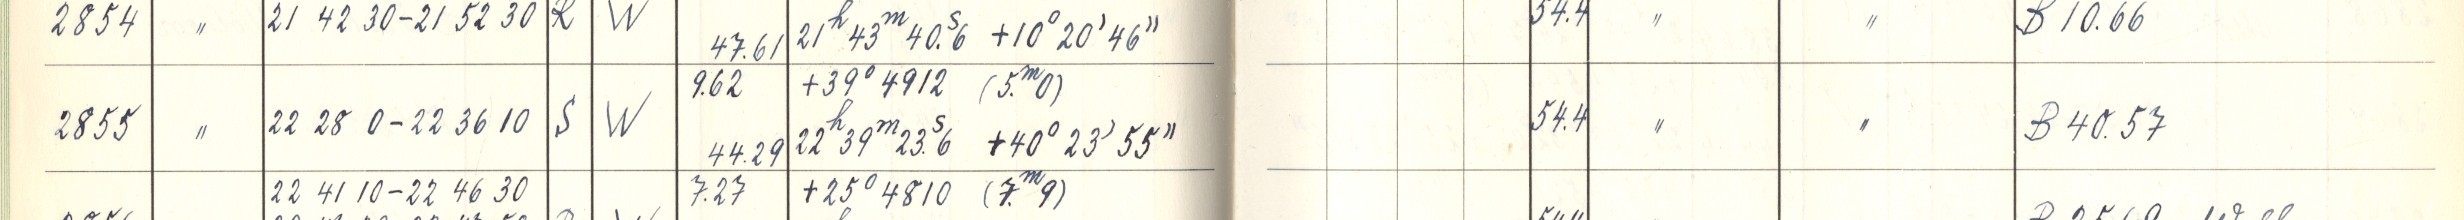 2854 〃 21 42 30-21 52 30 R W 47.61 21ʰ 43ᵐ 40.ˢ6 +10° 20' 46" 54.4 〃 〃 B 10.66
9.62 +39° 4912 (5.ᵐ0)
2855 〃 22 28 0-22 36 10 S W 44.29 22ʰ 39ᵐ 23.ˢ6 +40° 23' 55" 54.4 〃 〃 B 40.57
22 41 10-22 46 30 7.27 +25° 4810 (7.ᵐ9)